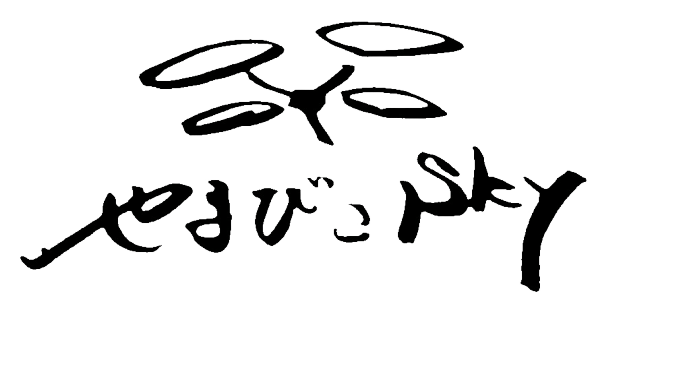 やまびこSky